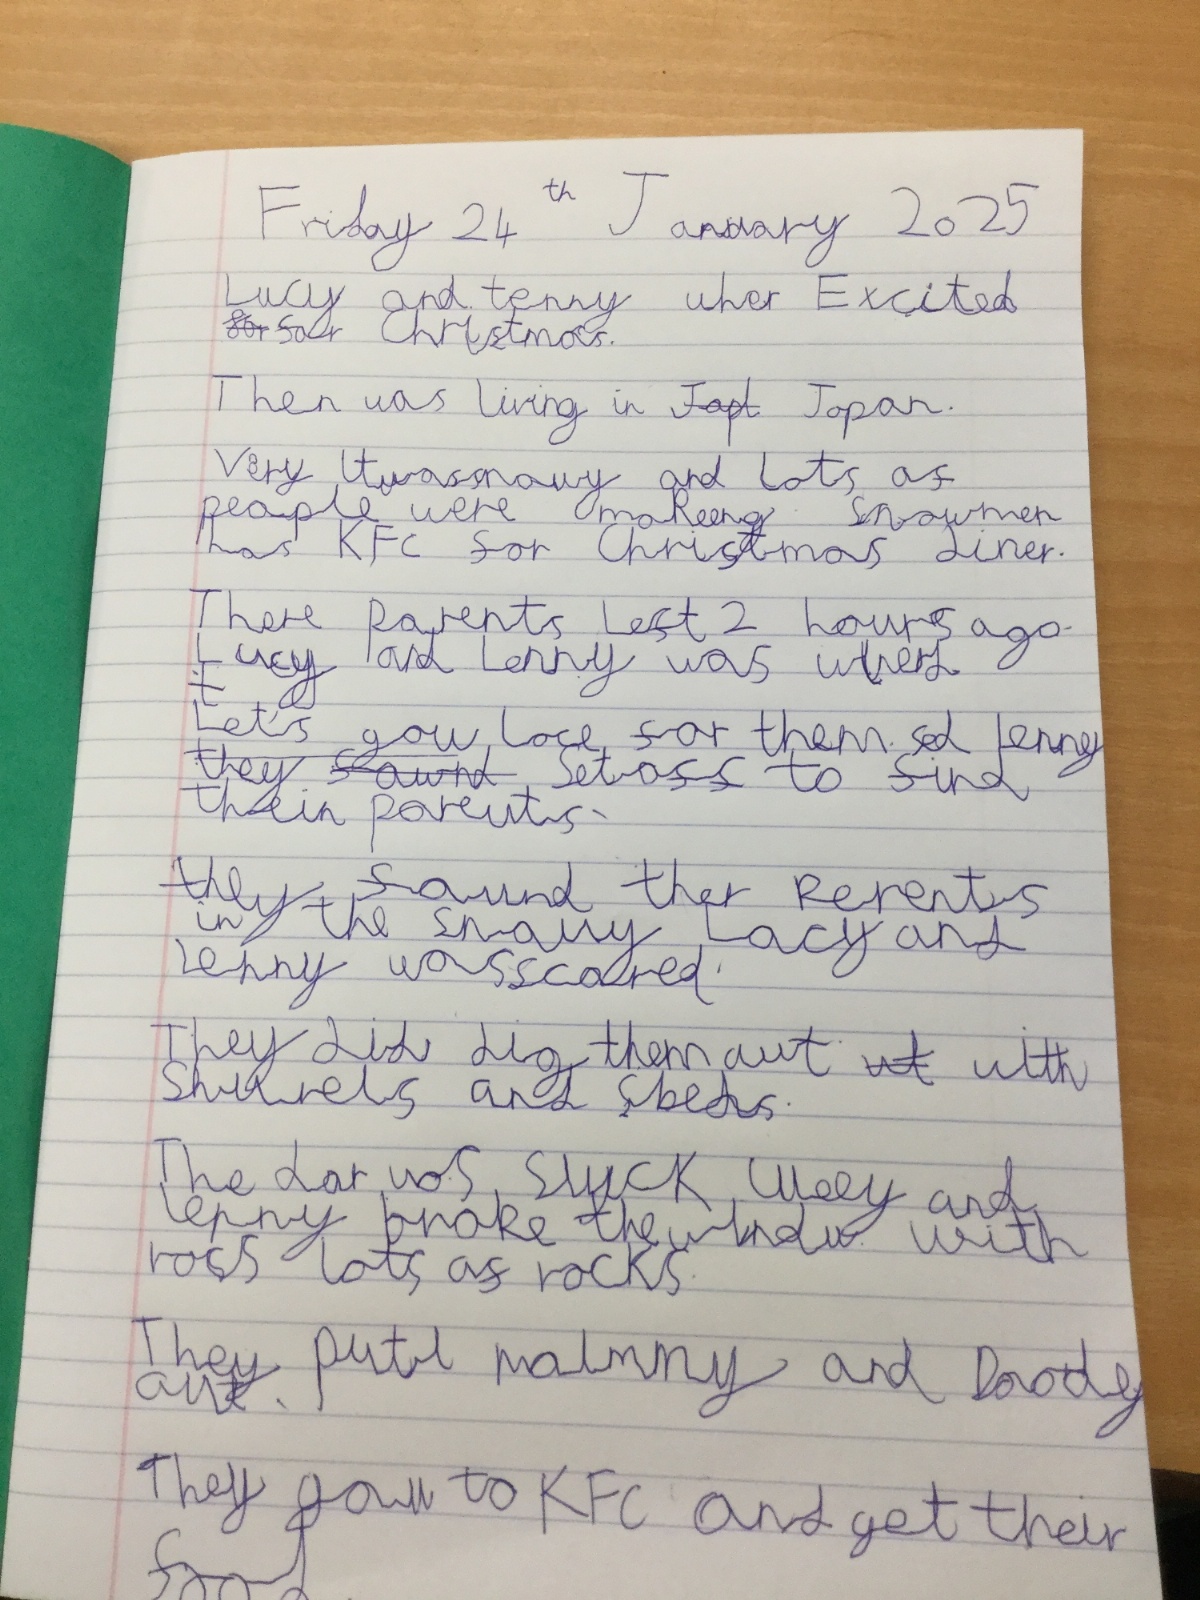 Friday 24th January 2025
Lucy and tenny wher Excited
for four Christmas.
Then was living in Japt Japan.
Very Itwassnowy and lots as
people were makeeng snowmen
has KFC for Christmas diner.
There Parents Lest 2 hours ago.
Lucy and Lenny was
t
Let's gow looe for them. sed lenny
they fownd setoff to find
thein parents.
they fownd ther Rerents
in the snowy Lacy and
lenny wasscared.
They did dig them aut wt with
Shurels and sbeds.
The dor was stuck and
lenny broke the window with
rocs lots as rocks.
They putl malmmy and Daody
aut.
They gow to KFC and get their
food.